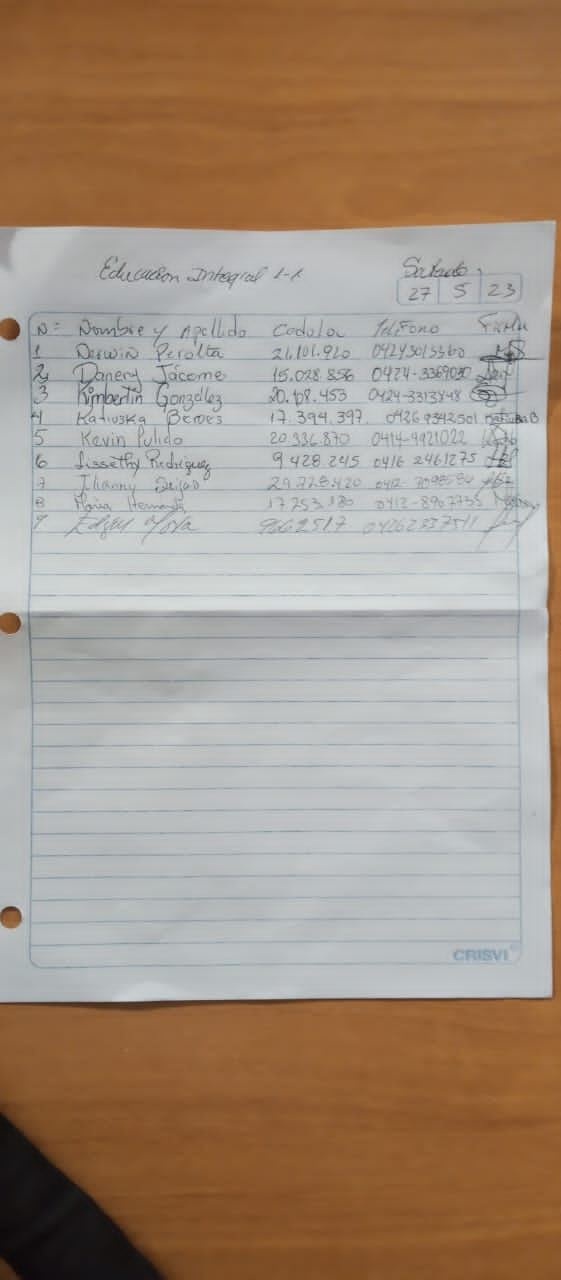 Educacion Integral 1-1
Sabado
27 5 23
N= Nombre y Apellido Cedula Telefono Firma
1 Derwin Peralta 21.101.920 04243015360
2 Danery Jácome 15.028.856 0424-3369030
3 Kimberlin González 20.108.453 0424-3313848
4 Katiuska 17.394.397 04269342501 Katiuska B
5 Kevin Pulido 20.336.870 0414-9921022
6 Lissethy Rodriguez 9.428.245 0416 2461275
7 Jhanny 29.728.420 0412
8 Maria Hernandez 17253180 0412-8902735
9 Edgar Mora 9662517 04262337511
CRISVI